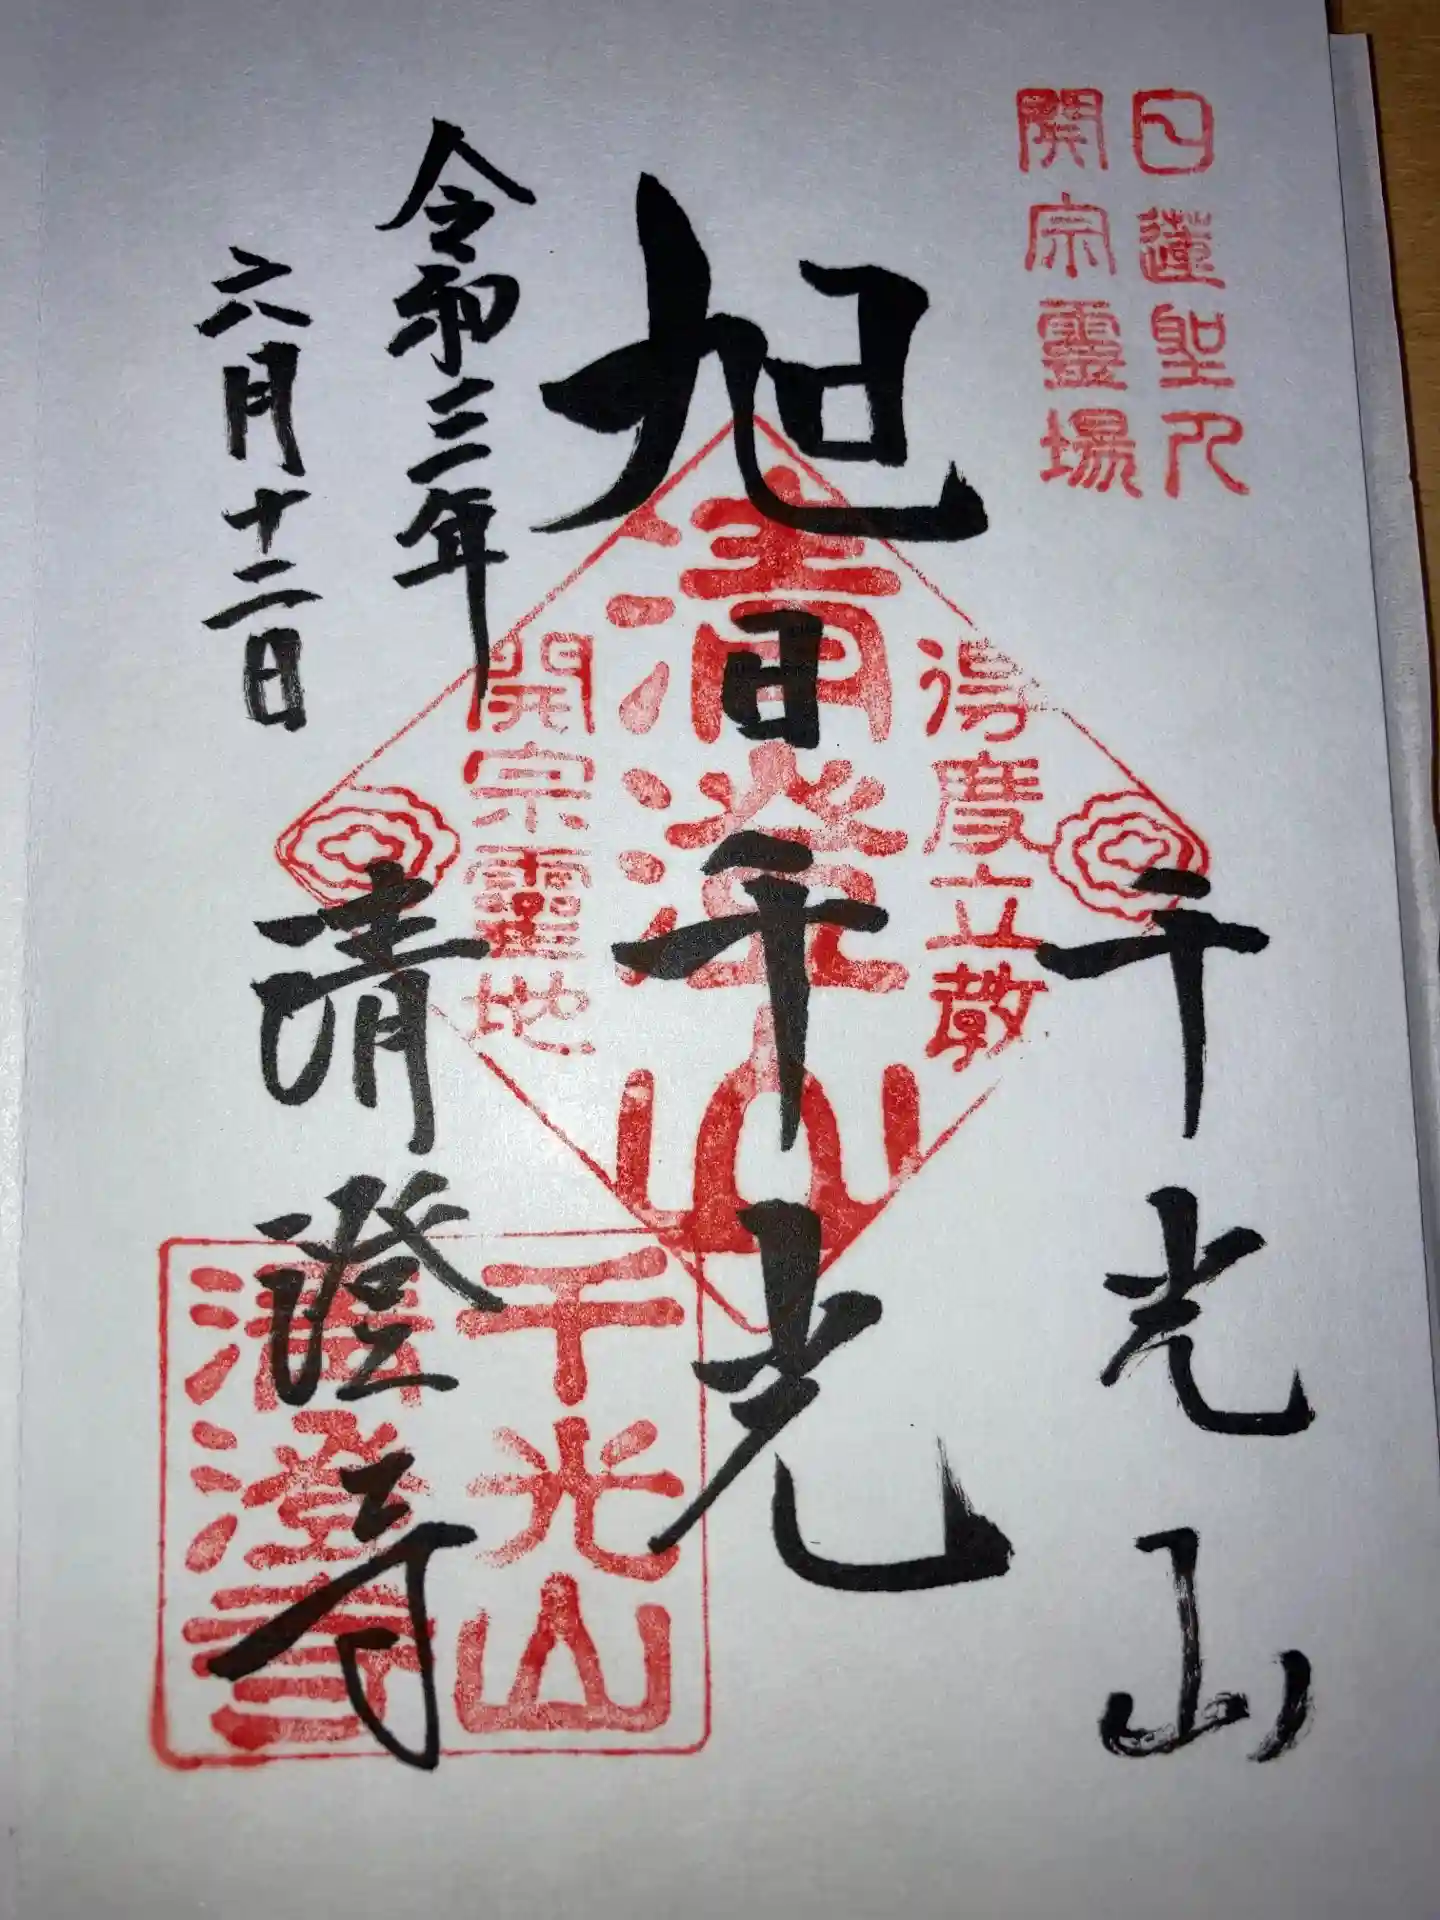 日蓮聖人
開宗靈場
千光山
旭日千光
得度立教
清澄山
開宗靈地
令和三年
六月十二日
清澄寺
千光山
清澄寺